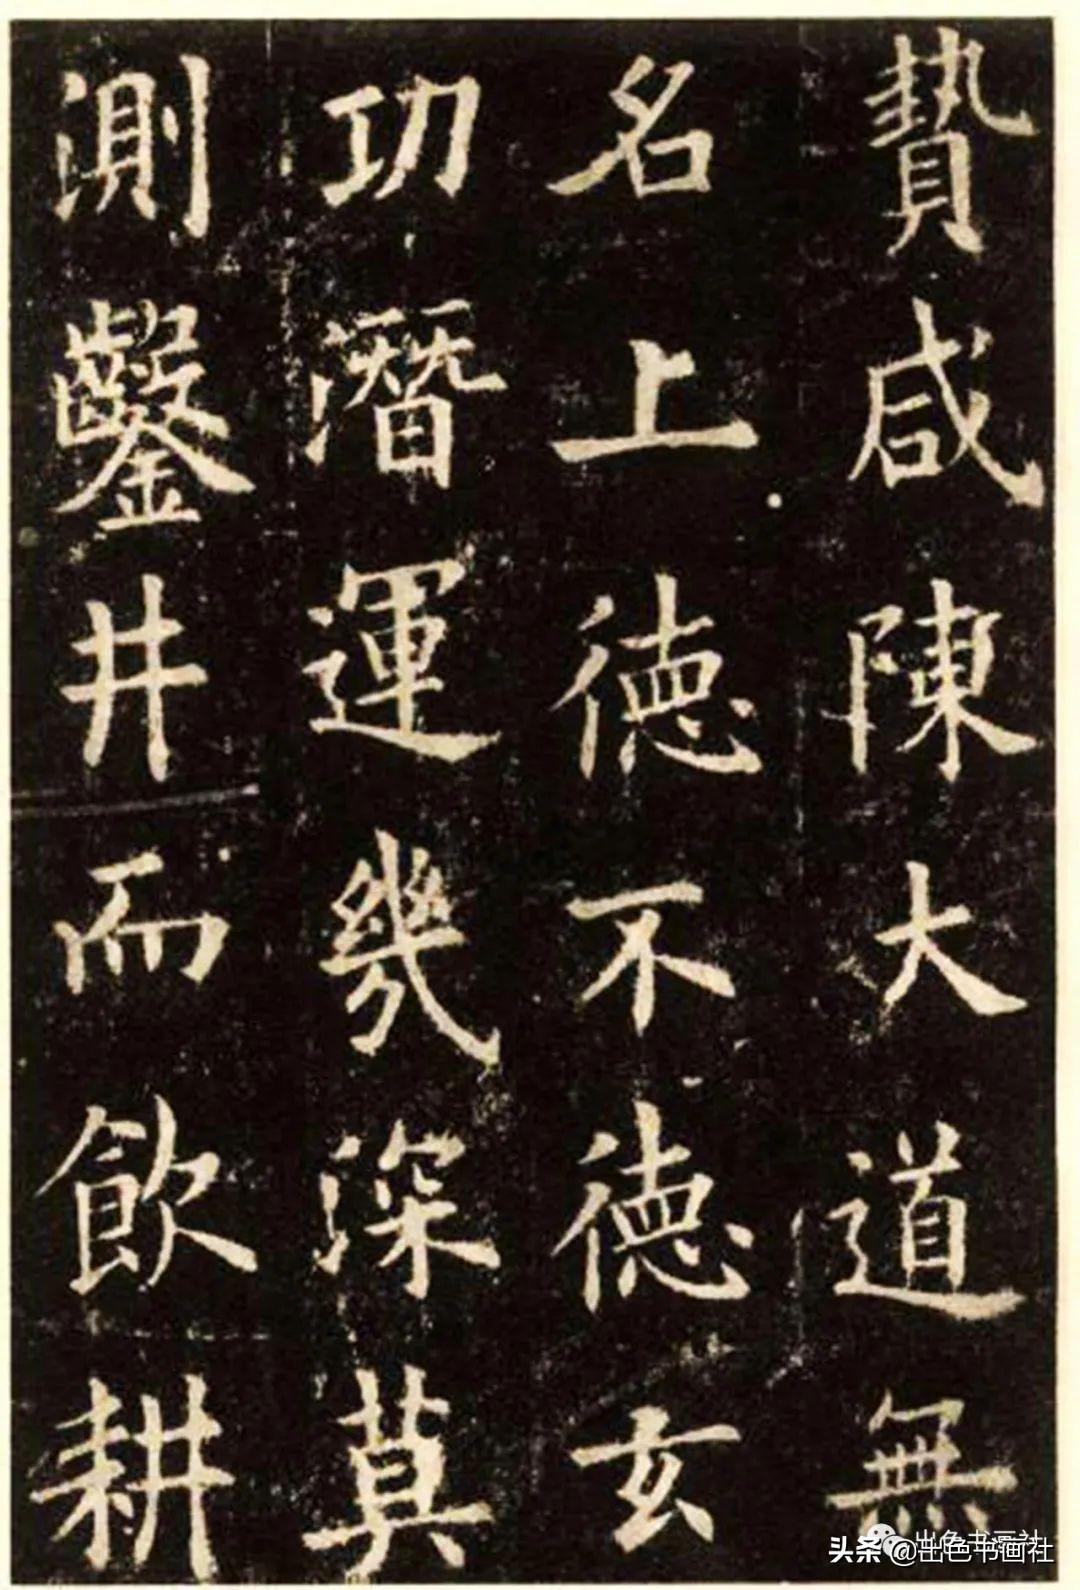 贄咸陳大道無
名上德不德玄
功潛運幾深莫
測鑿井而飲耕
出色书画社
头条 @出色书画社